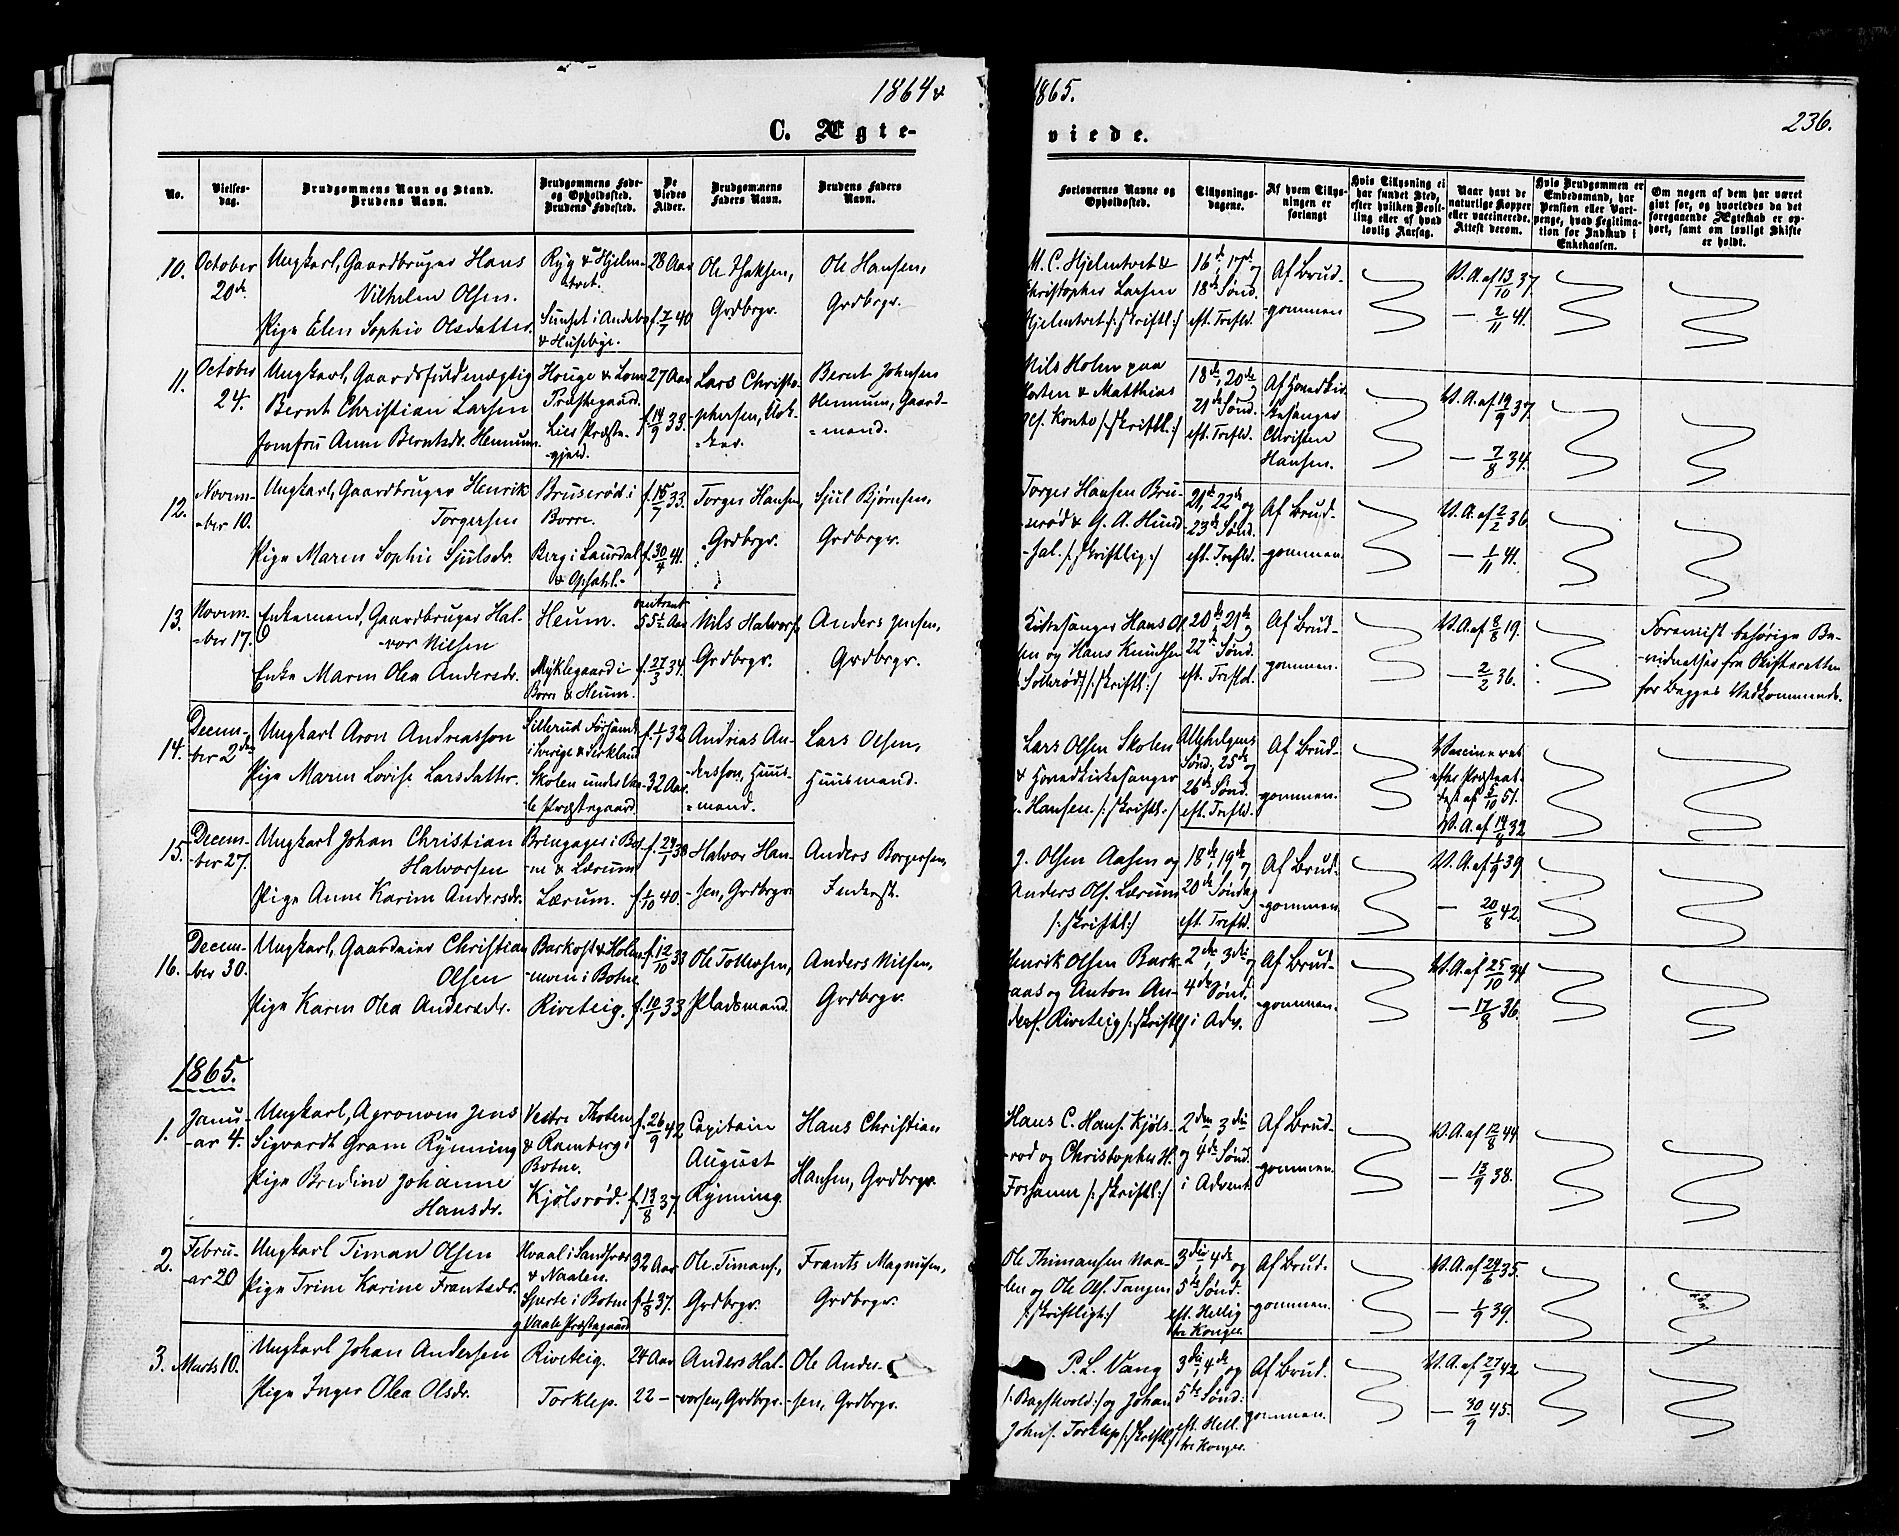 1864 &
1865.
236.
C. Ægte-
viede.
No.
Vielses-
dag.
Brudgommens Navn og Stand.
Brudens Navn.
Brudgommens Føde-
og Opholdssted.
Brudens Fødested.
De
Viedes
Alder.
Brudgommens
Faders Navn.
Brudens Faders
Navn.
Forlovernes Navne og
Opholdssted.
Tillysnings-
dagene.
Af hvem Tillys-
ningen er
forlangt
Hvis Tillysning ei
har fundet Sted,
efter hvilken Bevil-
ling eller af hvad
lovlig Aarsag.
Naar havt de
naturlige Kopper
eller vaccinerede.
Attest derom.
Hvis Brudgommen er
Embedsmand, har
Pension eller Vart-
penge, hvad Legitima-
tion for Indskud i
Enkekassen.
Om nogen af dem har været
givt før, og hvorledes da det
foregaaende Ægteskab er op-
hørt, samt om lovligt Skifte
er holdt.
10.
October
20de
Ungkarl, Gaardbruger Hans
Vilhelm Olsen.
Pige Elen Sophie Olsdatter.
Ryg & Hjelm-
tvet.
Sunset i Andebo
& Huseby.
28 Aar
f. 7/7 40
Ole Isaksen,
Grdbrgr.
Ole Hansen,
Grdbrgr.
M. C. Hjelmtvet &
Christopher Larsen
Hjelmtvet /: skriftl :/
16de, 17de og
18de Sønd.
eft. Trefld.
Af Brud-
gommen
V. A. af 13/10 37.
— 2/11 41.
11.
October
24.
Ungkarl, Gaardsfuldmægtig
Bernt Christian Larsen
Jomfru Anne Berntsdr. Hennum.
Houge & Lom
Præstegaard.
Lier Præste-
gjeld.
27 Aar
f. 14/9 33.
Lars Christo-
phersen,
Bernt Johnsen
Hennum, Gaard-
mand.
Nils Holm paa
Olsf. Konto /: skriftl :/
18de, 20de og
21de Sønd.
eft. Trefld.
Af Hovedkir-
kesanger
Christen
Hansen.
V. A. af 19/9 37.
— 7/8 34.
12.
Novem-
ber 10.
Ungkarl, Gaardbruger Henrik
Torgersen
Pige Maren Sophie Sjulsdr.
Bruserød i
Borre.
Berg i Laurdal
& Opsahl.
f. 15/7 33.
f. 30/4 41.
Torger Hansen,
Grdbrgr.
Sjul Bjørnsen,
Grdbrgr.
Torger Hansen Bru-
serød & G. A. Hund-
sal. /: skriftlig :/
21de, 22de og
23de Sønd.
eft. Trefld.
Af Brud-
gommen.
V. A. af 2/2 36.
— 1/11 41.
13.
Novem-
ber 17.
Enkemand, Gaardbruger Hal-
vor Nilsen
Enke Maren Olea Andersdr.
Heum.
Myklegaard i
Borre & Heum.
omtrent
55½ Aar
f. 27/3 34.
Nils Halvors.
Grdbrgr.
Anders Jensen,
Grdbrgr.
Kirkesanger Hans Ol-
sen og Hans Knudsen
Sollerød /: skriftl :/
20de 21de og
22de Sønd.
eft. Trefld.
Af Brud-
gommen.
V. A. af 8/8 19.
— 2/2 36.
Forevist behørige Be-
vidnelser fra Skifteretten
for begges Vedkommende.
14.
Decem-
ber 2den
Ungkarl Aron Andreasson
Pige Maren Lovise Larsdatter.
Sillerud Forsaml.
i Sverige & Kirkland
Skolen under Vaa-
le Præstegaard.
f. 1/1 32
32 Aar
Andreas An-
dersson, Huus-
mand.
Lars Olsen,
Huusmand.
Lars Olsen Skolen
& Hovedkirkesanger
C. Hansen /: skriftl :/
Allehelgens
Sønd., 25de og
26de Sønd.
eft. Trefld.
Af Brud-
gommen.
Vaccineret
efter Præsteat-
test af 5/10 51.
V. A. af 14/8 32
15.
Decem-
ber 27.
Ungkarl Johan Christian
Halvorsen
Pige Anne Karine Andersdr.
Bringager i Bot-
ne & Lærum
Lærum.
f. 24/1 38
f. 1/10 40.
Halvor Han-
sen, Grdbrgr.
Anders Borgersen,
Inderst.
J. Olsen Aasen og
Anders Ols. Lærum
/: skriftl :/
18de, 19de og
20de Søndag
eft. Trefld.
Af Brud-
gommen.
V. A. af 1/9 39.
— 20/8 42.
16.
Decem-
ber 30.
Ungkarl, Gaardeier Christian
Olsen
Pige Karen Olea Andersdr.
Barkost & Holm-
men i Botne
Riveteig.
f. 12/10 33
f. 10/1 33
Ole Tollersen,
Pladsmand.
Anders Nilsen,
Grdbrgr.
Henrik Olsen Bark-
aas og Anton An-
ders. Riveteig /: skriftl :/
2den, 3die og
4de Sønd.
i Adv.
Af Brud-
gommen.
V. A. af 25/10 34
— 17/8 36.
1865.
1.
Janu-
ar 4.
Ungkarl, Agronom Jens
Sigvardt Gram Rynning
Pige Bredine Johanne
Hansdr.
Vestre Thoten
& Ramberg i
Botne.
Kjølsrød.
f. 26/9 42
f. 13/8 37.
Capitain
August
Rynning.
Hans Christian
Hansen, Grdbrgr.
Hans C. Hans. Kjøls-
rød og Christopher H.
Fossan /: skriftl :/
2den 3die
og 4de Sønd.
i Advent
Af Brud-
gommen.
V. A. af 12/8 44.
— 13/9 38.
2.
Febru-
ar 20
Ungkarl Timan Olsen
Pige Trine Karine Frantsdr.
Hvaal i Sandsvær
& Naalen.
Sperle i Botne
og Vaale Præstegaard
32 Aar
f. 1/8 37.
Ole Timans.,
Grdbrgr.
Frants Magnusen,
Grdbrgr.
Ole Thimansen Naa-
len og Ole Ols. Tangen
/: skriftligt :/
3die, 4de og
5te Sønd.
eft. Hellig
tre Konger.
Af Brud-
gommen.
V. A. af 24/6 35.
— 1/9 39.
3.
Marts 10.
Ungkarl Johan Andersen
Pige Inger Olea Olsdr.
Riveteig.
Torklep.
24 Aar
22 —
Anders Hal-
vorsen, Grdbrgr.
Ole Ander-
sen, Grdbrgr.
P. L. Vang
/: Bagskvold :/ og Johan
Johns. Torklep /: skriftl :/
3die, 4de og
5te Sønd.
eft. Hell.
tre Konger.
Af Brud-
gommen.
V. A. af 27/7 42
— 30/9 45.